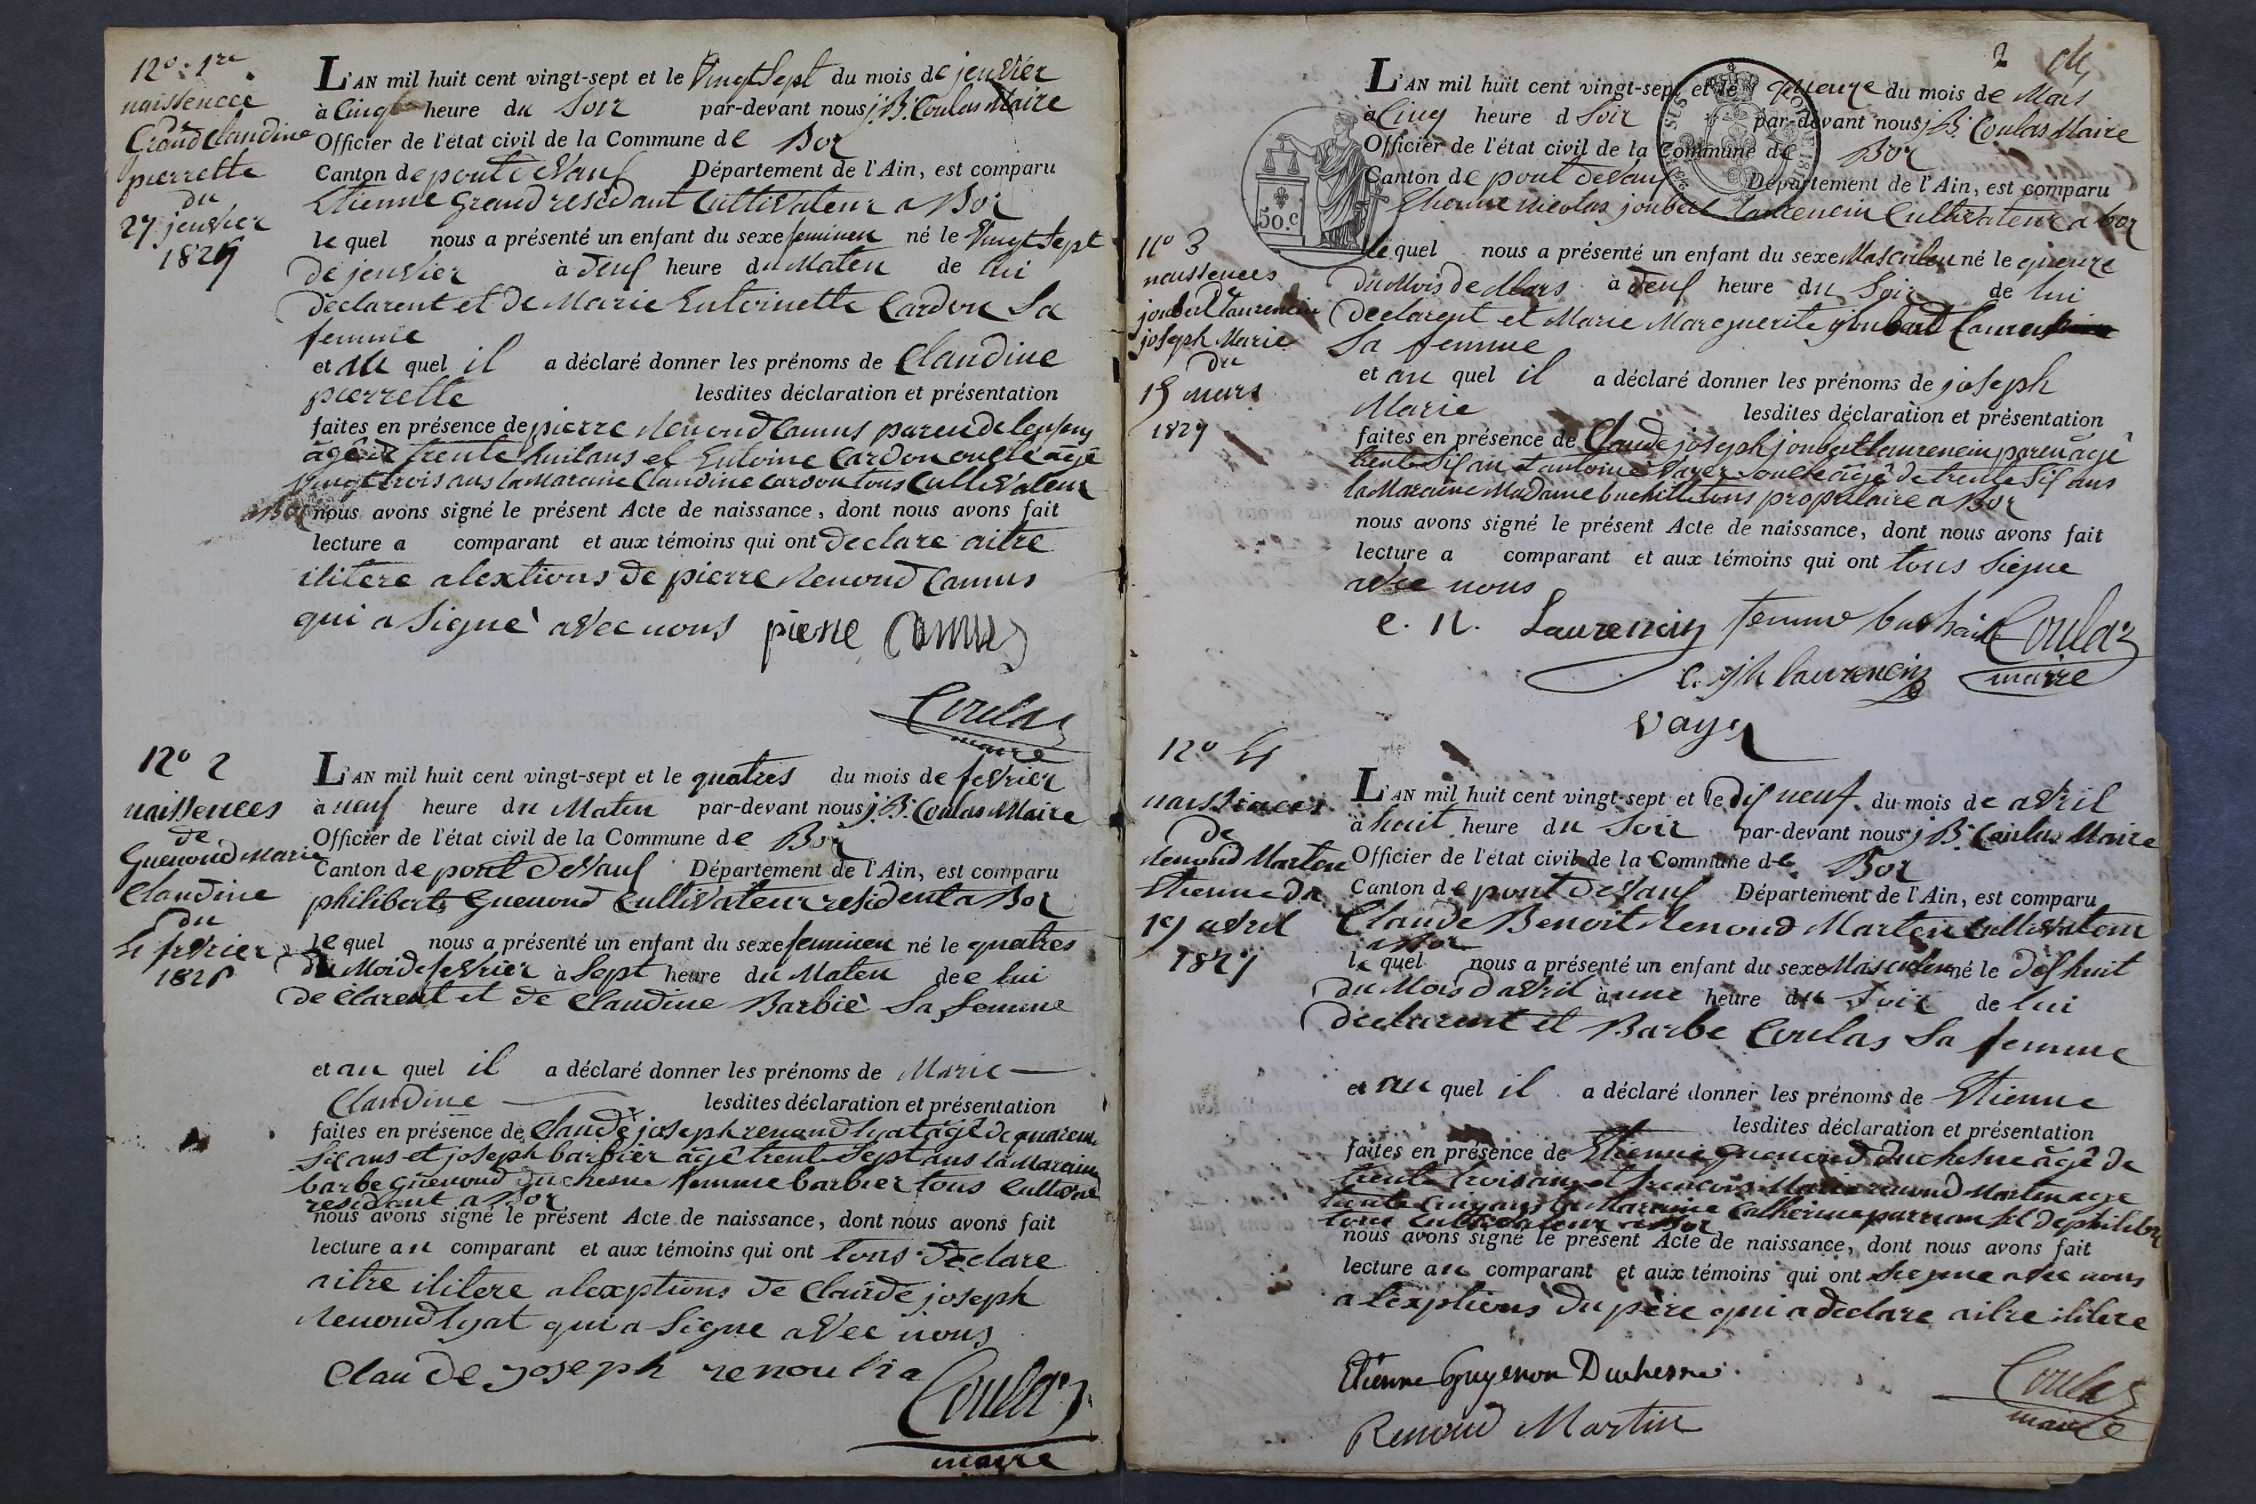 12º. 1re
naissencee
De
Graud Claudine
pierrette
du
27 jenvier
1827
L'AN mil huit cent vingt-sept et le Vingt Sept du mois de jenvier
à Cinq heure du Soir par-devant nous j. B. Coulas Maire
Officier de l'état civil de la Commune de Boz
Canton de pont de Vaux Département de l'Ain, est comparu
Etienne Graud residant Cultivateur a Boz
le quel nous a présenté un enfant du sexe feminen né le Vingt Sept
de jenvier à deux heure du Maten de lui
declarent et de Marie Entoinette Cardon Sa
femme
et au quel il a déclaré donner les prénoms de Claudine
pierrette lesdites déclaration et présentation
faites en présence de pierre Renoud Camus
âgé de trente huit ans et Entoine Cardon oncle âgé
vingt trois ans la Maraine Claudine Cardon tous Cultivateur
a Boz nous avons signé le présent Acte de naissance, dont nous avons fait
lecture a comparant et aux témoins qui ont declare aitre
ilitere alextions de pierre Renoud Camus
qui a Signé avec nous pierre Camus
Coulas
maire
12º 2
naissences
de
Guenoud Marie
Claudine
du
4 fevrier
182
L'AN mil huit cent vingt-sept et le quatres du mois de fevrier
à neuf heure du Maten par-devant nous j. B. Coulas Maire
Officier de l'état civil de la Commune de Boz
Canton de pont de Vaux Département de l'Ain, est comparu
philibert Guenoud Cultivateur resident a Boz
le quel nous a présenté un enfant du sexe feminen né le quatres
du Moi de fevrier à Sept heure du Maten de lui
declarent et de Claudine Barbiè Sa femme
et au quel il a déclaré donner les prénoms de Marie
Claudine lesdites déclaration et présentation
faites en présence de Claude joseph renoud lyat âgé de quarente
Six ans et joseph barbier âgé trente Sept ans la Maraine
barbe Guenoud Duchesne femme barbier tous Cultivateur
residant a Boz
nous avons signé le présent Acte de naissance, dont nous avons fait
lecture au comparant et aux témoins qui ont tous declare
aitre ilitere alexptions de Claude joseph
Renoud lyat qui a Signe avec nous
Claude joseph renoulia
Coulas
maire
2
L'AN mil huit cent vingt-sept et le quienze du mois de Mars
à Cinq heure d Soir par-devant nous j B. Coulas Maire
Officier de l'état civil de la Commune de Boz
Canton de pont de Vaux Département de l'Ain, est comparu
50. c
Etienne nicolas joubert Laurencin Cultivateur a boz
11º 3
naissences
De
joubert laurencin
joseph Marie
du
15 mars
1827
le quel nous a présenté un enfant du sexe Masculen né le quienze
du Mois de Mars à deux heure du Soir de lui
declarent et Marie Marguerite joubert
Sa femme
et au quel il a déclaré donner les prénoms de joseph
Marie lesdites déclaration et présentation
faites en présence de Claude joseph joubert laurencin âgé
trente Six an et antoine Vayer âgé de trente Six ans
la Maraine Madame buchille tous propriétaire a Boz
nous avons signé le présent Acte de naissance, dont nous avons fait
lecture a comparant et aux témoins qui ont tous Siegne
avec nous
e. n. Laurencin femme buchaille Coulas
c. jh laurencin maire
vayer
12º 4
naissences
De
Renoud Marten
Etienne du
19 avril
1827
L'AN mil huit cent vingt-sept et le dix neuf du mois de avril
à huit heure du Soir par-devant nous j B. Coulas Maire
Officier de l'état civil de la Commune de Boz
Canton de pont de Vaux Département de l'Ain, est comparu
Claude Benoit Renoud Marten Cultivateur
a Boz
le quel nous a présenté un enfant du sexe Masculen né le dix huit
du Mois d'avril à une heure du Soir de lui
declarent et Barbe Coulas Sa femme
et au quel il a déclaré donner les prénoms de Etienne
lesdites déclaration et présentation
faites en présence de Etienne Guenoud Duchesne âgé de
trente trois ans et francois Marie renoud Marten age
trente Cinq ans la Maraine Catherine de philibert
tous Cultivateur a Boz
nous avons signé le présent Acte de naissance, dont nous avons fait
lecture au comparant et aux témoins qui ont Siegne avec nous
a lexptions du père qui a declare aitre ilitere
Etienne Guyenon Duchesne
Coulas
maire
Renoud Martin